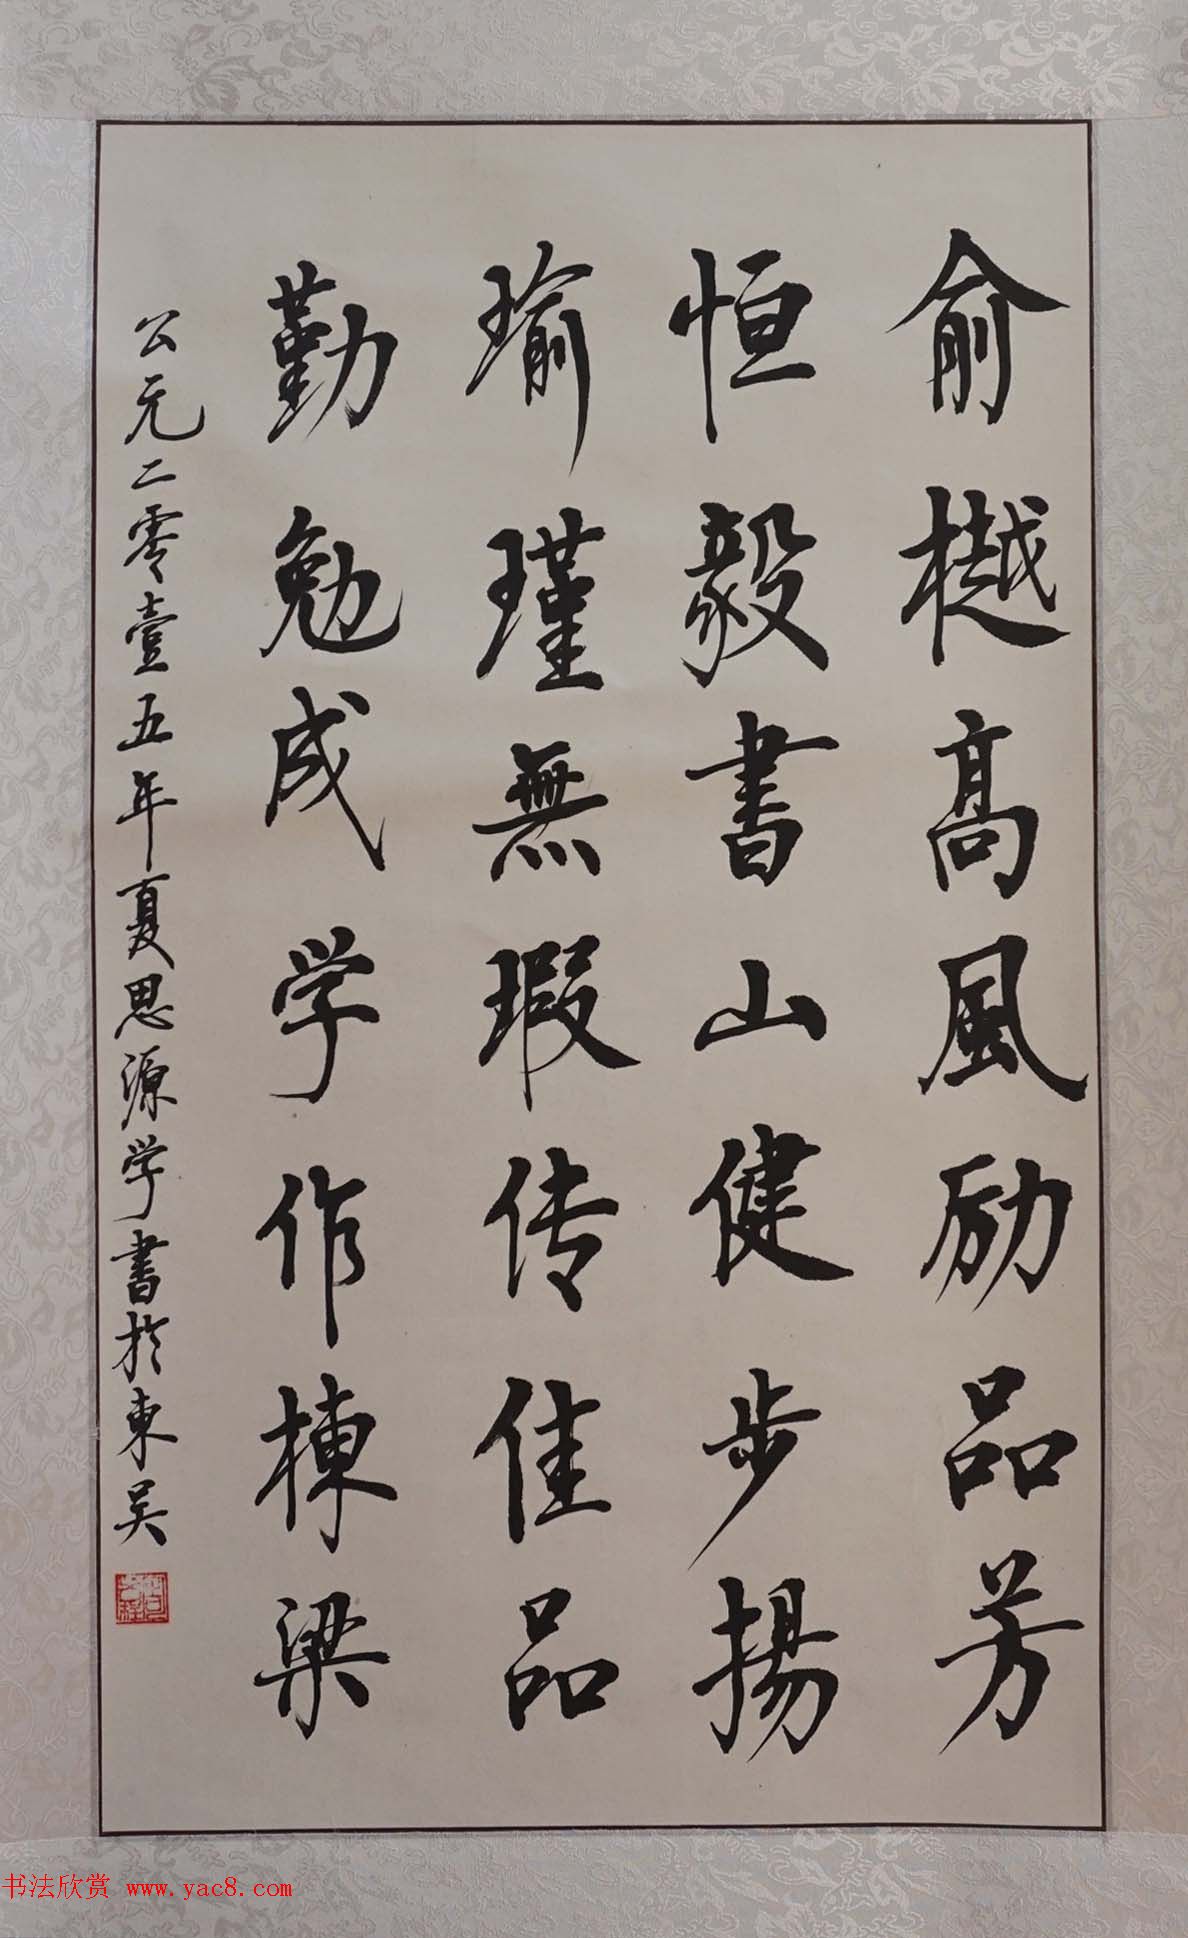 俞樾高風励品芳
恒毅書山健步揚
瑜瑾無瑕传佳品
勤勉成学作棟梁
公元二零壹五年夏思源学書於東吴
书法欣赏 www.yac8.com